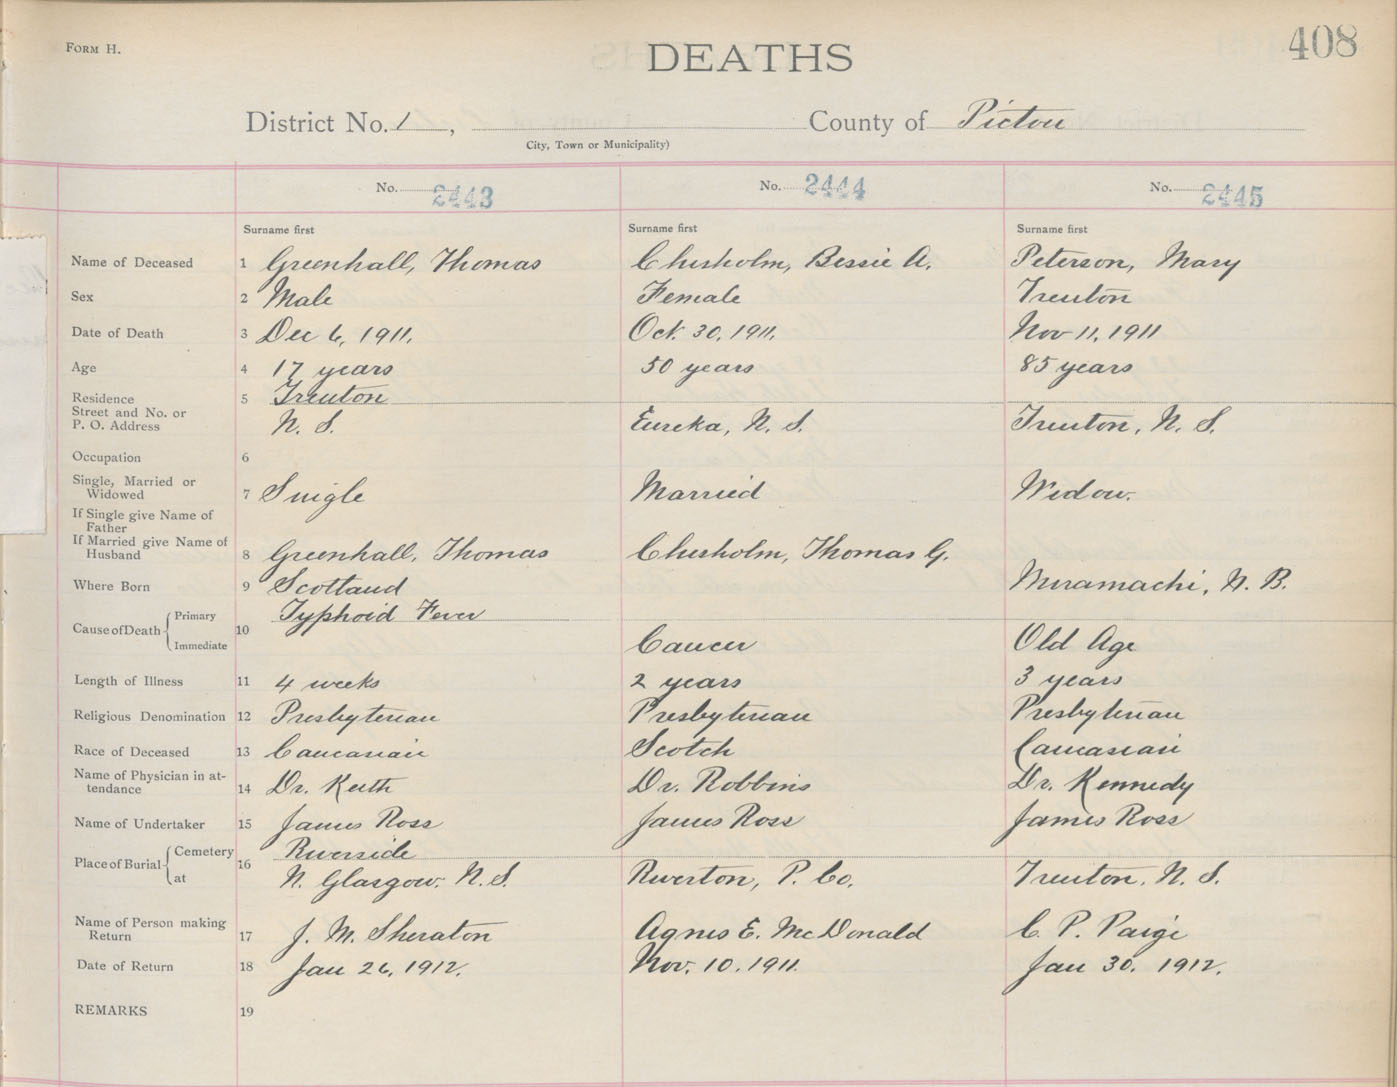 FORM H.
DEATHS
408
District No. 1, County of Pictou
City, Town or Municipality)
No. 2443 No. 2444 No. 2445
Surname first Surname first Surname first
Name of Deceased 1 Greenhall, Thomas Chisholm, Bessie A. Peterson, Mary
Sex 2 Male Female Trenton
Date of Death 3 Dec 6, 1911. Oct. 30, 1911. Nov 11, 1911
Age 4 17 years 50 years 85 years
Residence 5 Trenton
Street and No. or
P. O. Address N. S. Eureka, N. S. Trenton, N. S.
Occupation 6
Single, Married or
Widowed 7 Single Married Widow.
If Single give Name of
Father
If Married give Name of
Husband 8 Greenhall, Thomas Chisholm, Thomas G.
Where Born 9 Scotland Miramachi, N. B.
Primary Typhoid Fever
Cause of Death 10
Immediate Cancer Old Age
Length of Illness 11 4 weeks 2 years 3 years
Religious Denomination 12 Presbyterian Presbyterian Presbyterian
Race of Deceased 13 Caucasian Scotch Caucasian
Name of Physician in at-
tendance 14 Dr. Keith Dr. Robbins Dr. Kennedy
Name of Undertaker 15 James Ross James Ross James Ross
Cemetery Riverside
Place of Burial 16
at N. Glasgow. N.S. Riverton, P. Co. Trenton. N. S.
Name of Person making
Return 17 J. M. Sheraton Agnes E. McDonald C. P. Paige
Date of Return 18 Jan 26, 1912. Nov. 10. 1911. Jan 30. 1912.
REMARKS 19